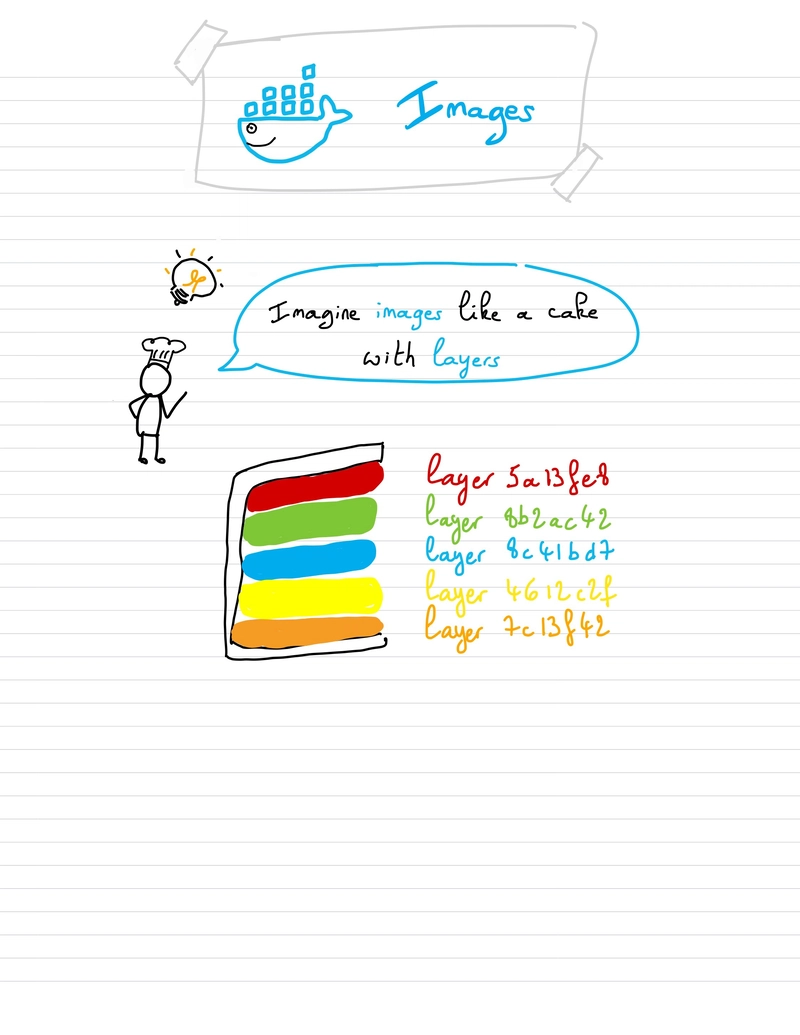 Images
Imagine images like a cake
with layers
layer 5a13fe8
layer 8b2ac42
layer 8c41bd7
layer 4612c2f
layer 7c13f42